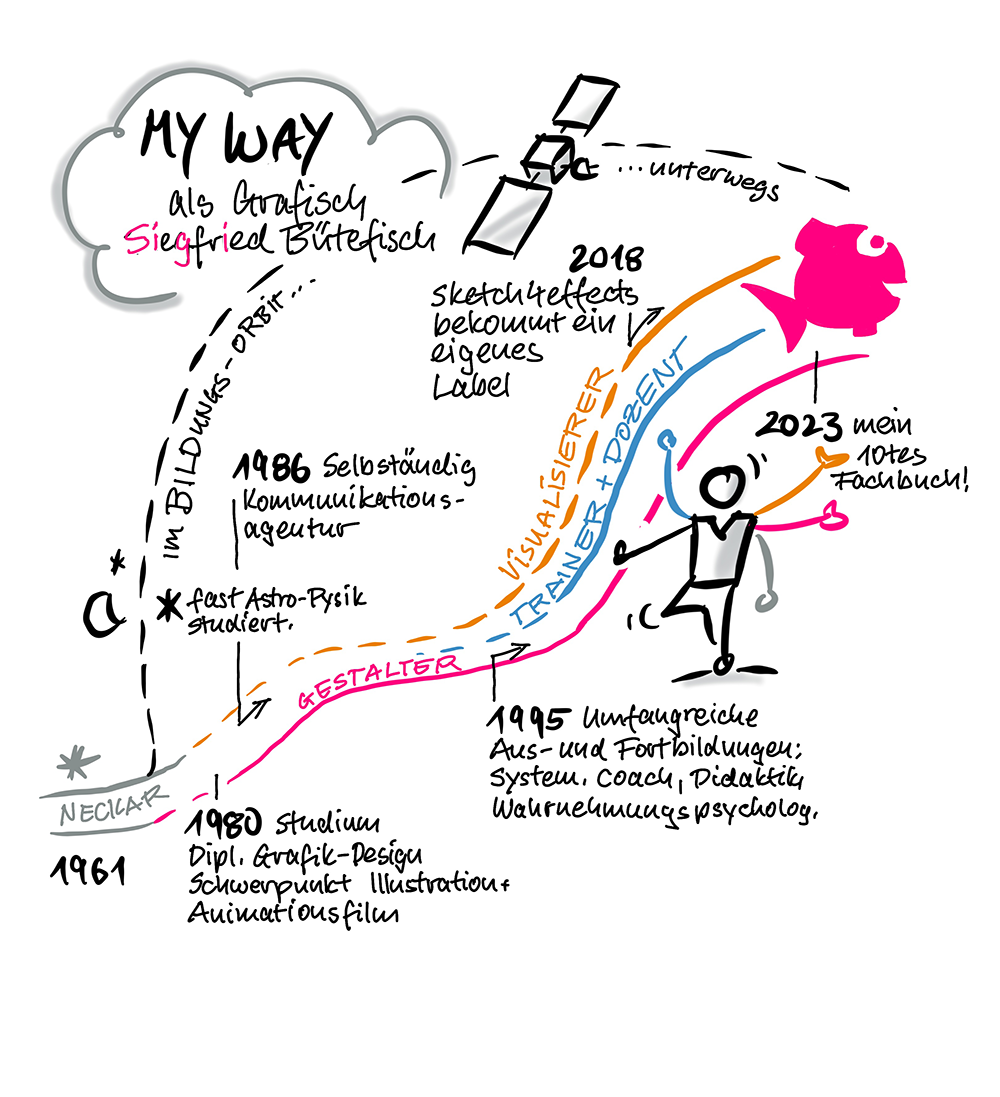 MY WAY
als Grafisch
Siegfried Bütefisch
...unterwegs
im BILDUNGS-ORBIT...
2018
Sketch4effects
bekommt ein
eigenes
Label
VISUALISIERER
TRAINER + DOZENT
GESTALTER
2023 mein
10tes
Fachbuch!
1986 Selbständig
Kommunikations-
agentur
* fast Astro-Pysik
studiert.
1995 Umfangreiche
Aus- und Fortbildungen:
System. Coach, Didaktik
Wahrnehmungspsycholog.
*
NECKAR
1961
1980 Studium
Dipl. Grafik-Design
Schwerpunkt Illustration+
Animationsfilm